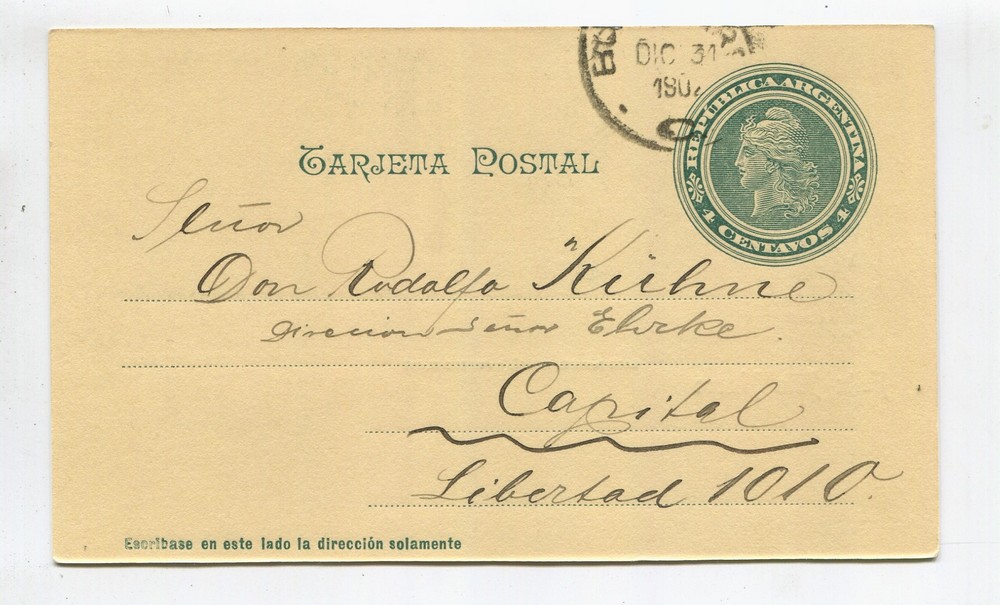 DIC 31
190
REPÚBLICA ARGENTINA
4 CENTAVOS 4
TARJETA POSTAL
Señor
Don Rodolfo Kühne
Direccion Señor
Capital
Libertad 1010.
Escribase en este lado la dirección solamente